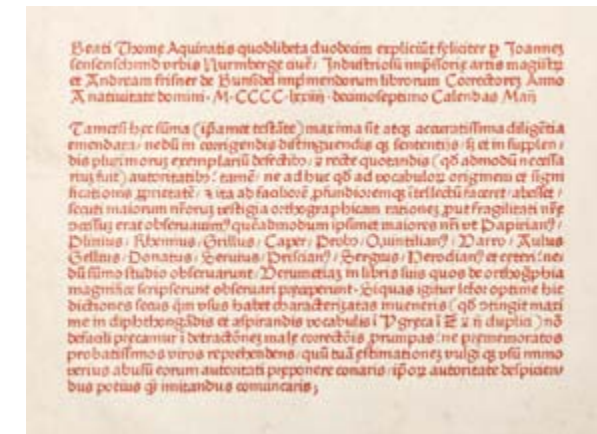 Beati Thome Aquinatis quodlibeta duodecim expliciūt feliciter ꝑ Joannez
sensenschmid vrbis Nurmberge ciuē / Industriosū imp̄ssorie artis magistꝝ
et Andream frisner de Bunsidel imp̄mendorum librorum Correctorez Anno
A natiuitate domini · M · CCCC · lxxiiij · decimoseptimo Calendas Maij
Tametsi hec sūma (ip̄amet testāte) maxima sit atqꝫ accuratissima diligētia
emendata / nedū in corrigendis distinguendis qꝫ sententijs / sꝫ et in supplen /
dis plurimoruꝫ exemplariū defectibꝫ / ⁊ recte quotandis (qd̄ admodū necessa
riuꝫ fuit) autoritatibꝫ / tamē / ne ad huc qd̄ ad vocabuloꝝ originem et signi
ficationis ꝓprietatē / ⁊ ita ab faciliorē ꝓfundioremqꝫ ītellectū faceret / abesset /
secuti maiorum nr̄oruꝫ vestigia orthographicam rationeꝫ / ꝓut fragilitati nr̄e
obseruauimꝰ / quēadmodum ipsimet maiores nr̄i vt Papirianꝰ /
Plinius / Rhemnius / Grillius / Caper / Probꝰ / Quintilianꝰ / Varro / Aulus
Gellius / Donatus / Seruius / Priscianꝰ / Sergius / Herodianꝰ et ceteri / ne
dū sūmo studio obseruarunt / Verumetiaꝫ in libris suis quos de orthogͣphia
magnifice scripserunt obseruari preceperunt · Siquas igitur lector optime hic
dictiones secus q̄m vsus habet characterizatas inueneris (qd̄ ↄtingit maxi
me in diphthongādis et aspirandis vocabulis ī y greca ī z ⁊ n̄ duplici) nō
defacili precamur ī detractōneꝫ male correctōis prumpas / ne prememoratos
probatissimos viros reprehendens / quū tuā estimationeꝫ vulgi qꝫ vsū immo
verius abusū eorum autoritati preponere conaris / ip̄oꝝ autoritate despicien /
dus potius qꝫ imitandus comuncaris ;